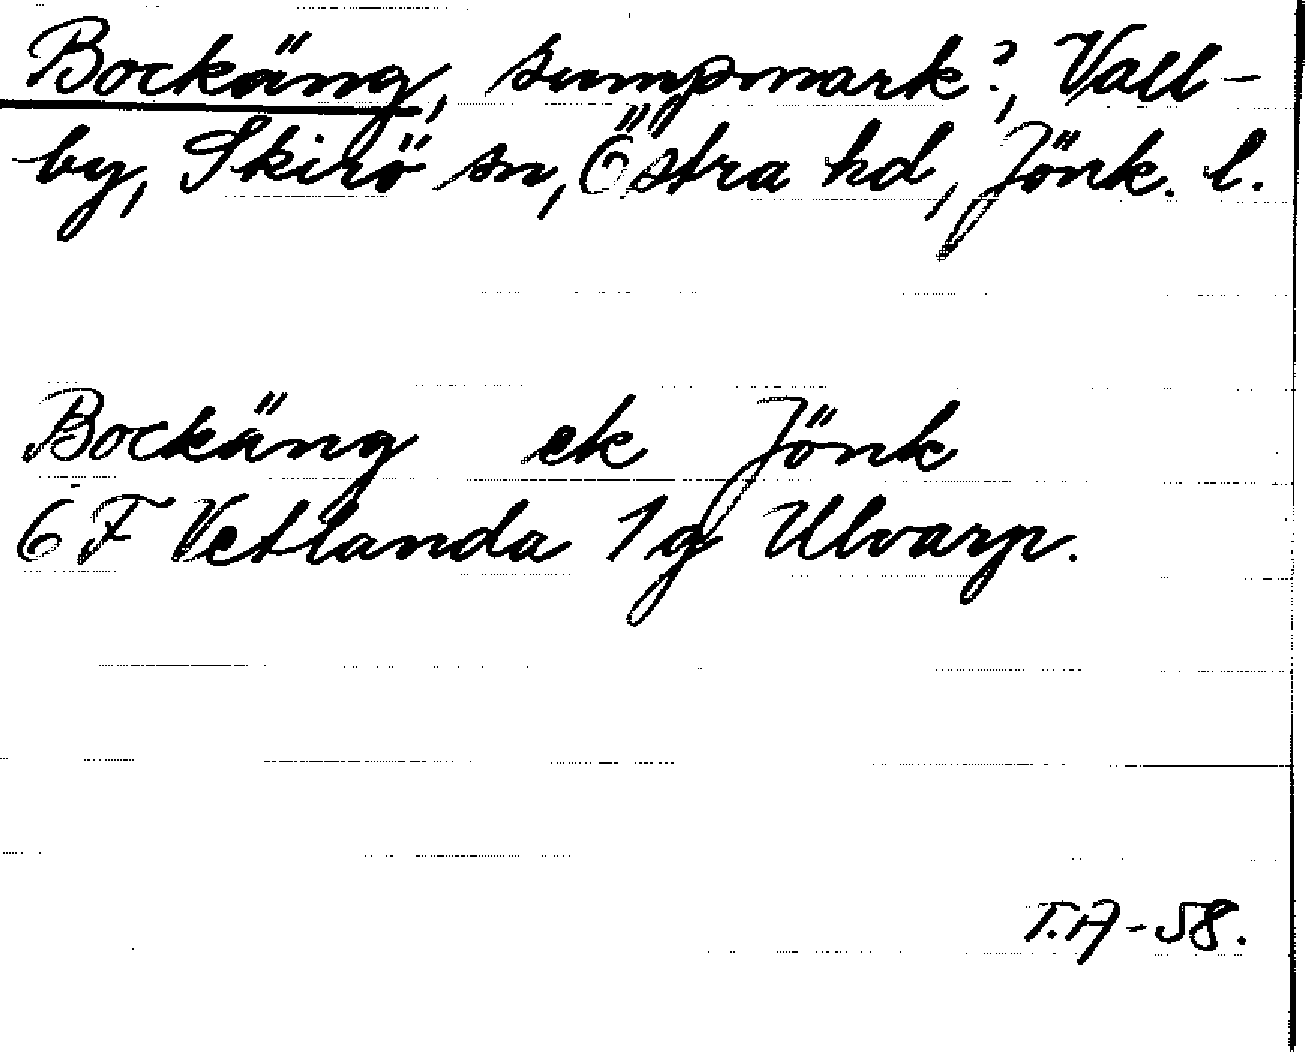 Bockäng, sumpmark?, Vall-
by, Skirö sn, Östra hd, Jönk. l.
Bockäng ek Jönk
6 F Vetlanda 1g Ulvarp.
T.A-58.